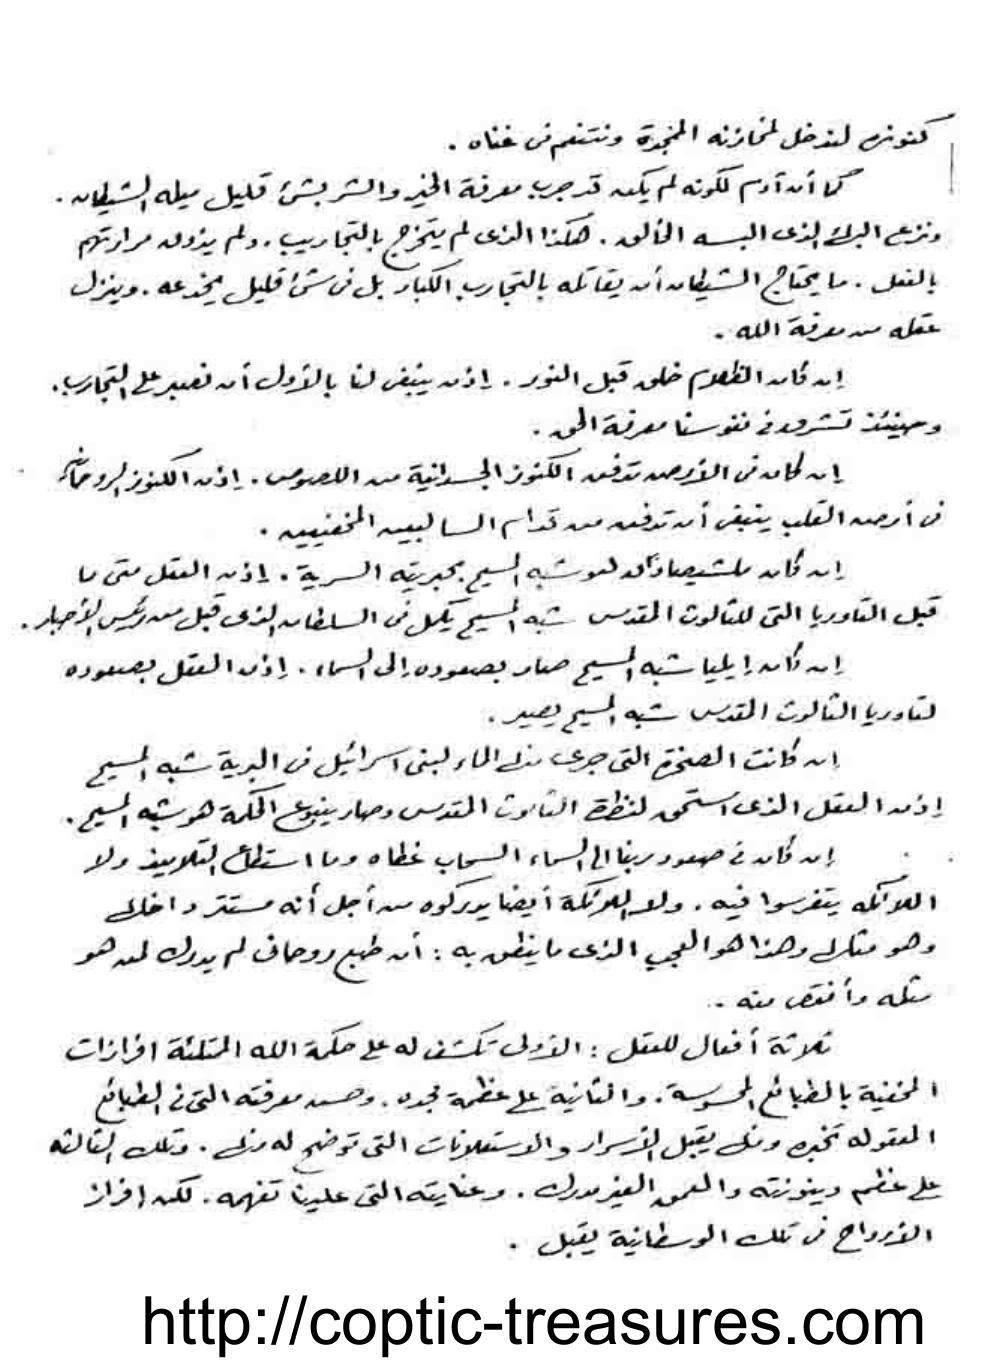 كنوزه لندخل لمخازنه الممجدة ونتنعم من غناه .
كما أن آدم لكونه لم يكن قد جرب معرفة الخير والشر بشئ قليل ميله الشيطان .
ونزع البر الذى البسه الخالق . هكذا الذى لم يتخرج بالتجاريب . ولم يذوق مرارتهم
بالفعل . ما يحتاج الشيطان أن يقاتله بالتجارب الكبار بل فى شئ قليل يخدعه . وينزل
عقله من معرفة الله .
إن كان الظلام خلق قبل النور . إذن ينبغى لنا بالأول أن نصبر على التجارب .
وحينئذ تشرق فى نفوسنا معرفة الحق .
إن كان فى الأرض تدفن الكنوز الجسدانية من اللصوص . إذن الكنوز الروحانية
فى أرض القلب ينبغى أن تدفن من قدام السالبين المخفيين .
إن كان ملشيصاداق هو شبه المسيح بحبريته السرية . إذن العقل متى ما
قبل التاوريا التى للثالوث المقدس شبه المسيح يكمل فى السلطان الذى قبل من رئيس الأحبار .
إن كان إيليا شبه المسيح صار بصعوده إلى السماء . إذن العقل بصعوده
لتاوريا الثالوث المقدس شبه المسيح يصير .
إن كانت الصخرة التى جرى منها الماء لبنى اسرائيل فى البرية شبه المسيح
إذن العقل الذى استحق لنظرة الثالوث المقدس وصار ينبوع الحكمة هو شبه المسيح .
إن كان فى صعود ربنا الى السماء السحاب غطاه وما استطاع التلاميذ ولا
الملائكه يتفرسوا فيه . ولا الملائكة أيضا يدركوه من أجل أنه مستتر داخلك
وهو مثلك وهذا هو العجب الذى ما ينطق به : أن طبع روحانى لم يدرك لمن هو
مثله وأنقص منه .
ثلاثة أفعال للعقل : الأولى تكشف له على حكمة الله الممتلئة افرازات
المخفية بالطبائع المحسوسة . والثانية على عظمة مجده . وحسن معرفته التى فى الطبائع
المعقوله تخبره ومنها يقبل الأسرار والاستعلانات التى توضح له منها . وتلك الثالثه
على عظم دينونته والعمق الغير مدرك . وعنايته التى علينا تفهمه . لكن افراز
الأرواح من تلك الوسطانية يقبل .
http://coptic-treasures.com